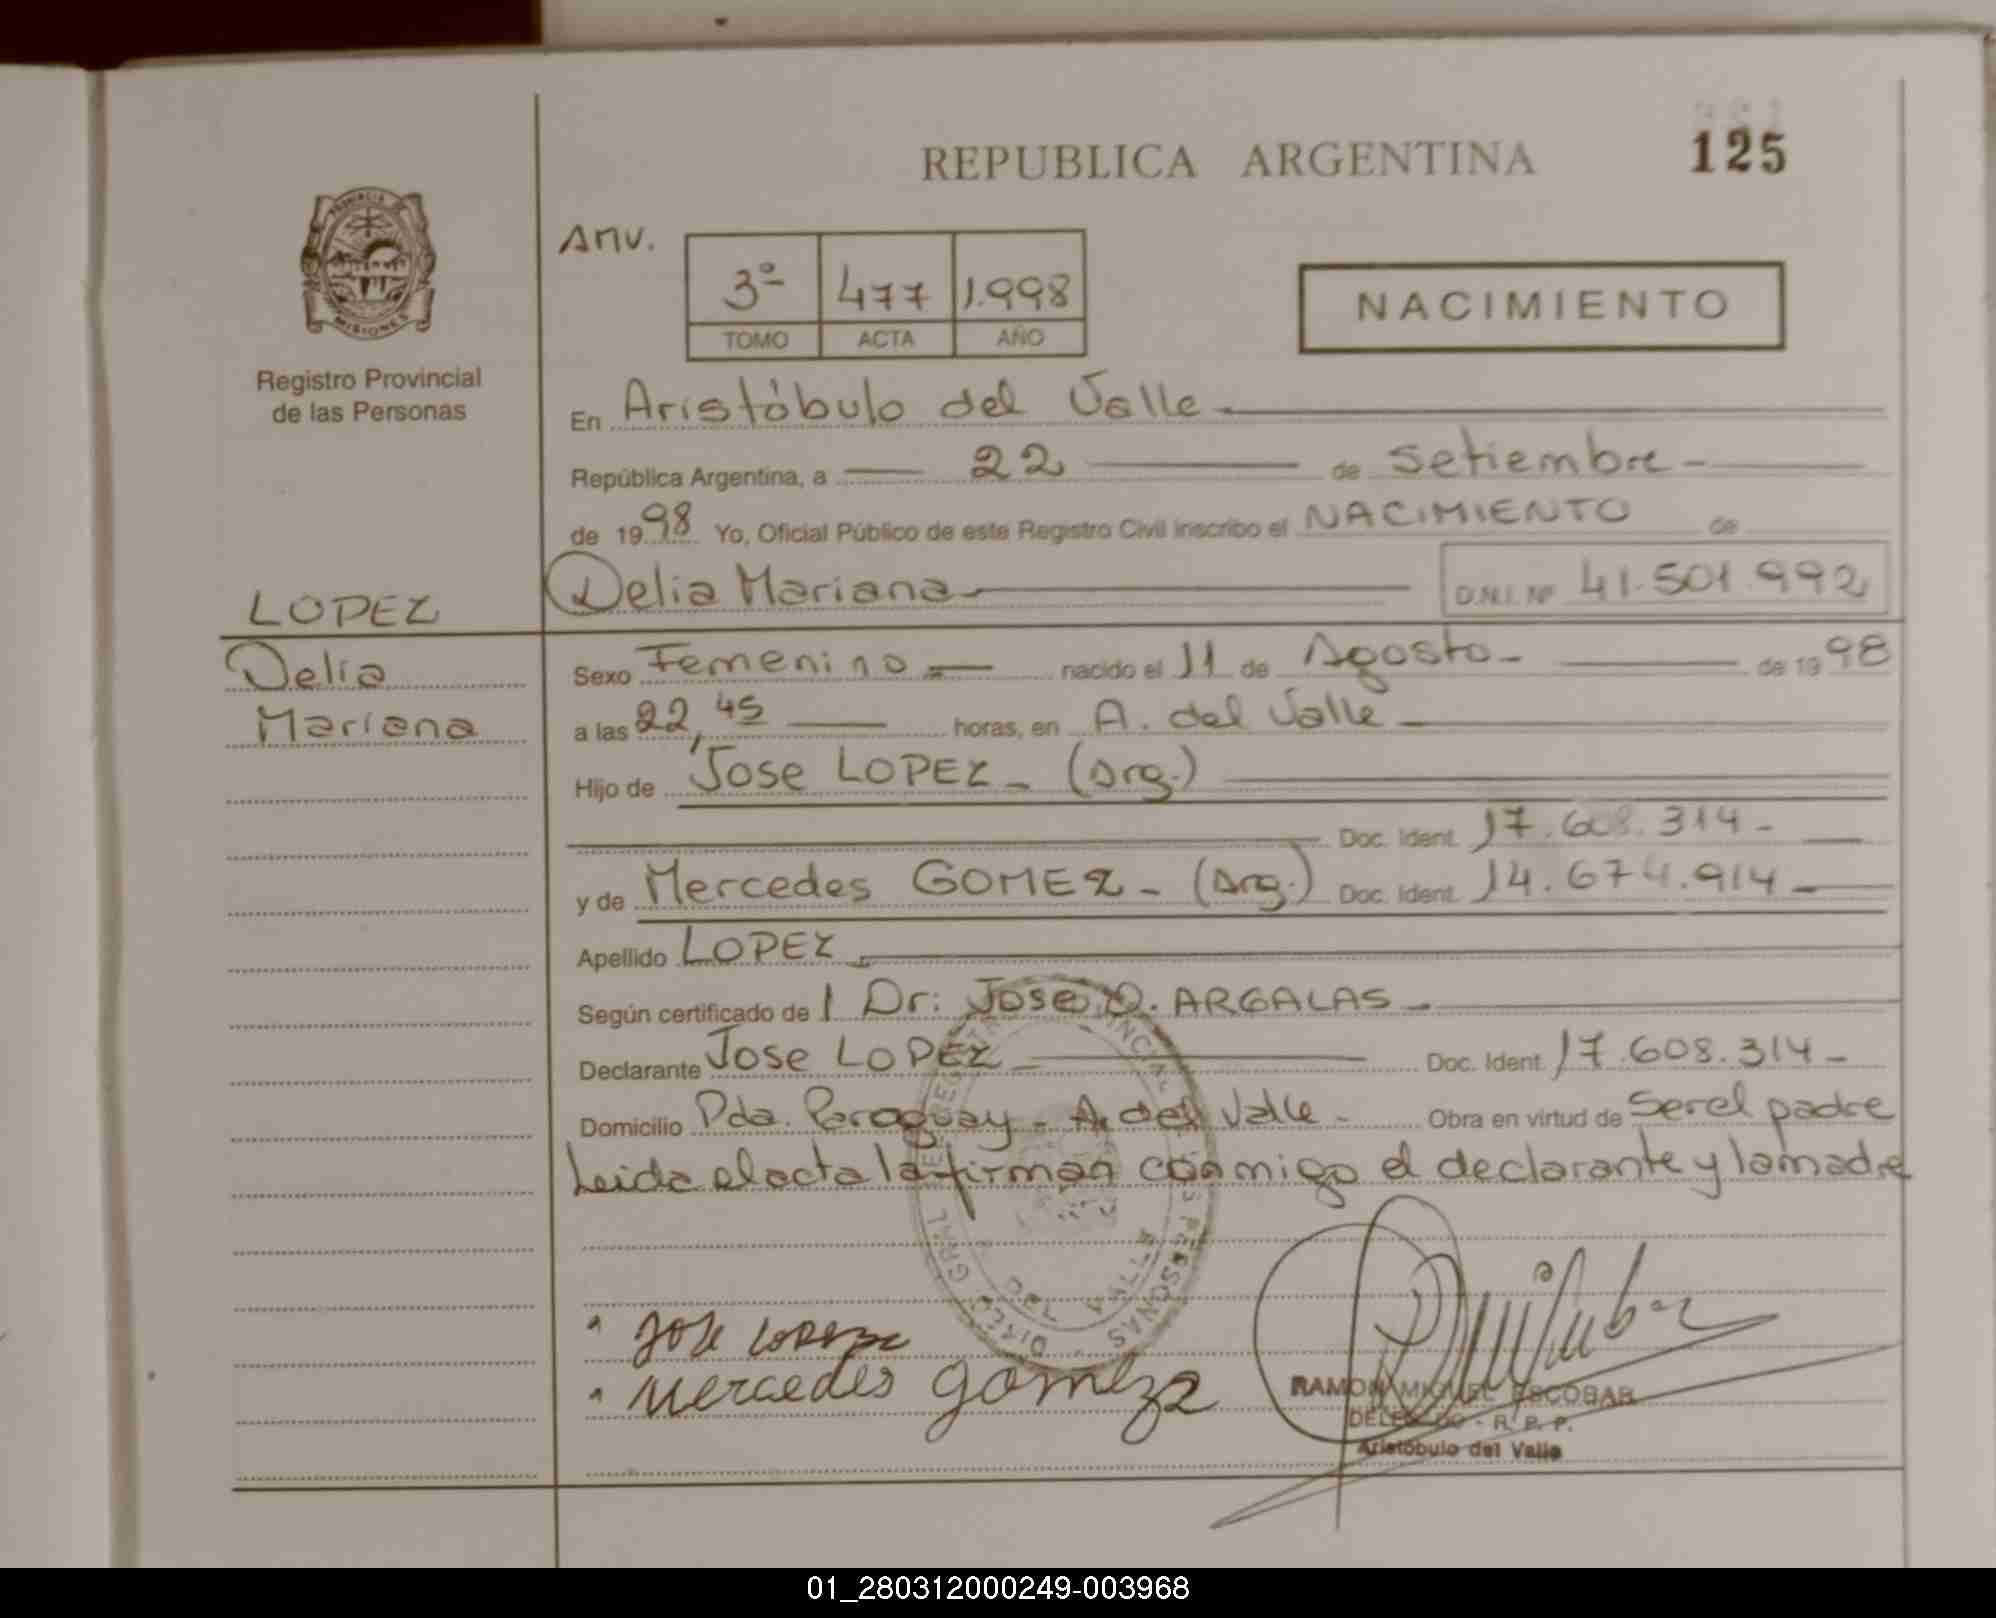 REPUBLICA ARGENTINA
125
PROVINCIA DE
MISIONES
Registro Provincial
de las Personas
Anv.
3º 477 1.998
TOMO ACTA AÑO
NACIMIENTO
En Aristóbulo del Valle
República Argentina, a 22 de Setiembre
de 1998 Yo, Oficial Público de este Registro Civil inscribo el NACIMIENTO de
Delia Mariana D.N.I. Nº 41.501.992
LOPEZ
Delia
Mariana
Sexo Femenino nacido el 11 de Agosto de 1998
a las 22,45 horas, en A. del Valle
Hijo de Jose LOPEZ (Arg.)
Doc. Ident. 17.608.314
y de Mercedes GOMEZ (Arg.) Doc. Ident. 14.674.914
Apellido LOPEZ
Según certificado de 1 Dr: Jose O. ARGALAS
Declarante Jose LOPEZ Doc. Ident. 17.608.314
Domicilio Pda. Paraguay - A. del Valle Obra en virtud de Ser el padre
Leida el acta la firman conmigo el declarante y la madre
Jose Lopez
Mercedes Gomez
RAMON MIGUEL ESCOBAR
DELEGADO - R. P. P.
Aristóbulo del Valle
01_280312000249-003968